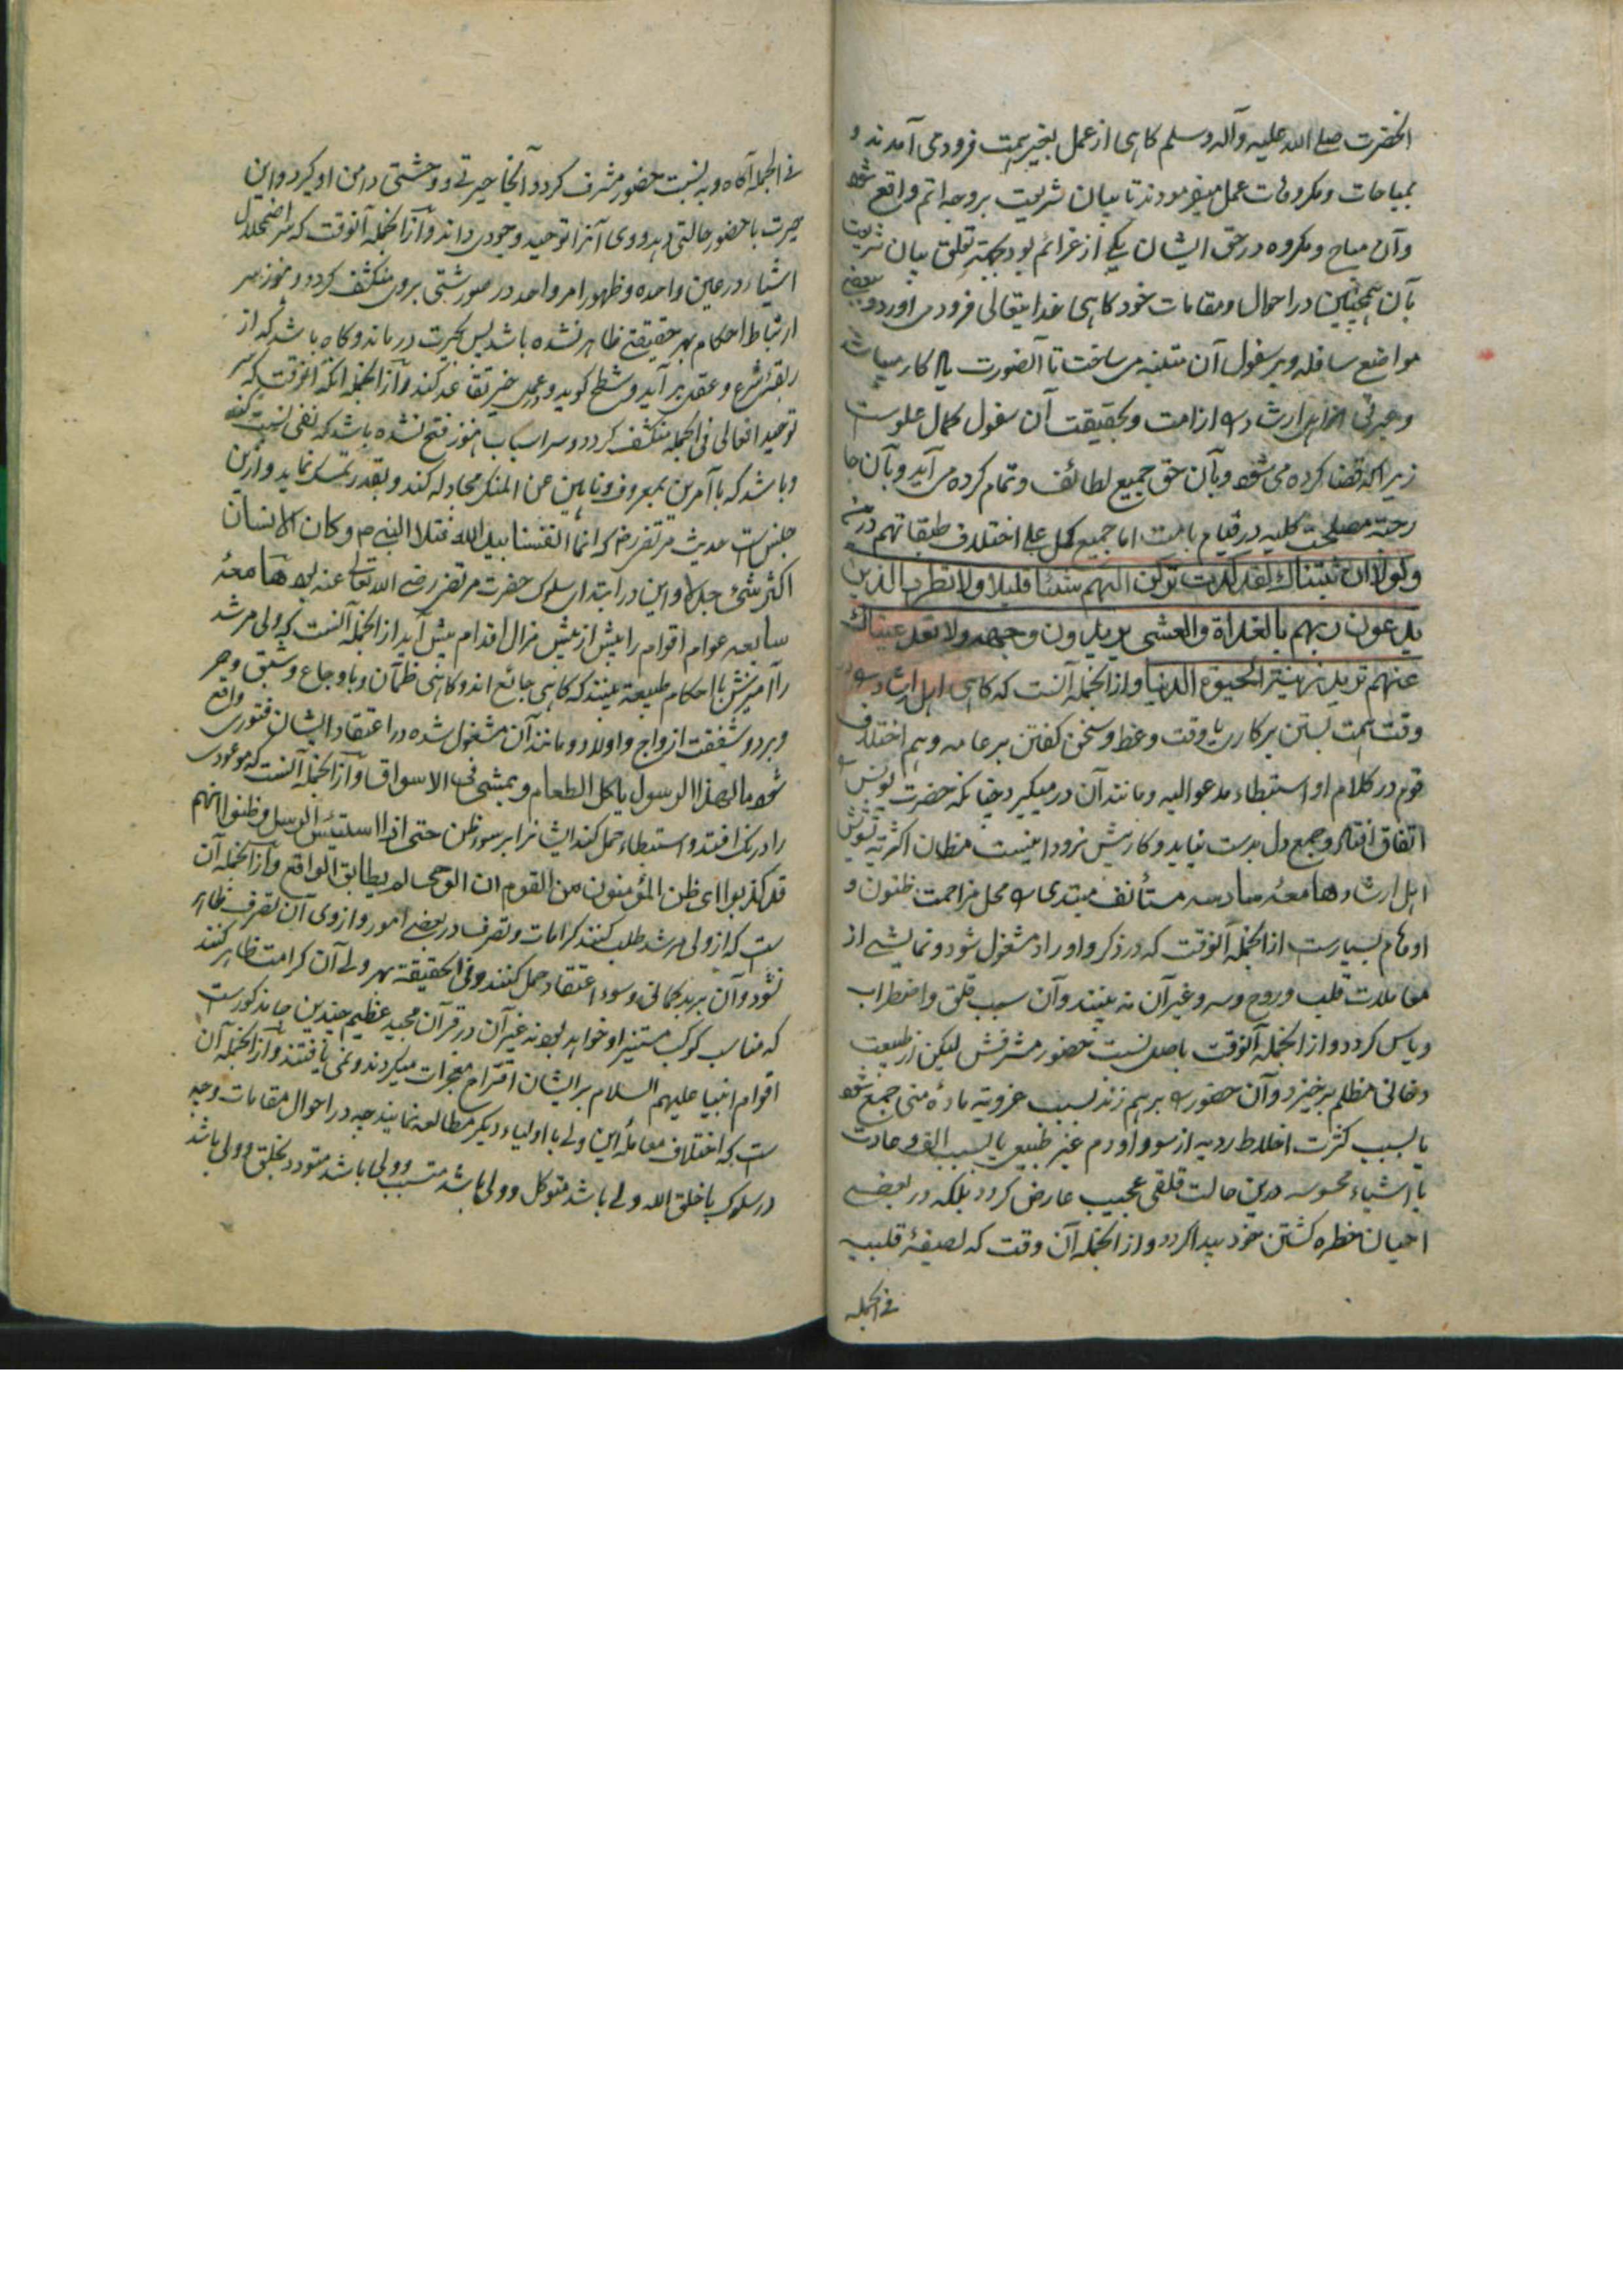 آنحضرت صلے الله علیه وآله وسلم کاهی از عمل بغیر همت فرود می آمدند و
بمباحات ومکروهات عمل میفرمودند تا بیان شریعت بر وجه اتم واقع شود
وآن مباح ومکروه در حق ایشان یکے از عزائم بود بجهته تعلق بیان شریعت
بآن همچنین در احوال ومقامات خود کاهی خدایتعالی فرود می آورد و بعضے
مواضع سافله وبر سفول آن متنبه می ساخت تا آنصورت کار
ارشاد است وبحقیقت آن سفول کمال علوست
زیرا که قضا کرده می شود وبآن حق جمیع لطائف وتمام کرده می آید وبآن
مصلحت کلیه در قیام اما جمیع کمل علے اختلاف طبقاتهم درین
ولولا ان ثبتناك لقد كدت تركن اليهم شيئا قليلا ولا تطرد الذين
يدعون ربهم بالغداة والعشي يريدون وجهه ولا تعد عيناك
عنهم تريد زينة الحيوة الدنيا واز انجمله آنست که کاهی اهل ارشاد را در
وقت همت بستن بر کار یا وقت وعظ وسخن کفتن بر عامه وهم اختلاف
قوم در کلام او استبطاء مدعو الیه ومانند آن درمیکیرد چنانکه حضرت یونس را
اتفاق افتاد وجمع دل بدست نیاید وکار پیش نرود اینست مظان اکثریه تشویش
اهل ارشاد هامعه سادسه مستأنف مبتدی را محل مزاحمت ظنون و
اوهام بسیارست از انجمله آنوقت که در ذکر واوراد مشغول شود ونمایشے از
معاملات قلب وروح وسر وغیر آن نه بینند وآن سبب قلق واضطراب
ویاس کردد واز انجمله آنوقت باصل نسبت حضور مشرفش لیکن از طبیعت
دخانی مظلم برخیزد وآن حضور را برهم زند بسبب عزوبته ماده منی جمع شود
یا بسبب کثرت اخلاط ردیه از سودا ودم غیر طبیعی یا بسبب الف وعادت
با اشیاء محسوسه درین حالت قلقی عجیب عارض کردد بلکه در بعضے
احیان خطره کشتن خود پیدا کردد واز انجمله آن وقت که لصیفهٔ قلبیه
فے الجمله
فے الجمله آکاه وبه نسبت حضور مشرف کردد آنجا حیرتے ووحشتی دامن او کیرد واین
حیرت با حضور حالتی دهد ووی آنرا توحید وجودی داند واز انجمله آنوقت که سر اضمحلال
اشیاء در عین واحده وظهور امر واحد در صور شتی بروی منکشف کردد وهنوز سر
ارتباط احکام بهر حقیقتے ظاهر نشده باشد پس بحیرت درماند وکاه باشد که از
ربقهٔ شرع وعقل برآید وشطح کوید وعمل خیر تقاعد کند واز انجمله آنکه آنوقت که سر
توحید افعالی فی الجمله منکشف کردد وسر اسباب هنوز فتح نشده باشد که نفی نسبت کند
وباشد که با آمرین بمعروف وناهین عن المنکر مجادله کند وبقدر تمسک نماید وازین
جنس است حدیث مرتضی رض که انما انفسنا بيد الله فتلا النبي ص وكان الانسان
اكثر شئ جدلا واین در ابتدای سلوک حضرت مرتضی رضی الله تعالی عنه بود هامعهٔ
سابعه عوام اقوام را بیش از بیش مزال اقدام پیش آید از انجمله آنست که ولی مرشد
را آمیزش با احکام طبیعة بینند که کاهی جائع اند وکاهی ظمآن وباوجاع وشبق وحر
وبرد وشفقت ازواج واولاد ومانند آن مشغول شده در اعتقاد ایشان فتوری واقع
شود مالهذا الرسول ياكل الطعام ويمشي في الاسواق واز انجمله آنست که موعودی
را درنک افتد واستبطاء حمل کند ایشانرا بر سوء ظن حتى اذا استيئس الرسل وظنوا انهم
قد كذبوا ای ظن المؤمنون من القوم ان الوحی لم يطابق الواقع واز انجمله آن
ست که از ولی مرشد طلب کنند کرامات وتصرف در بعضے امور واز وی آن تصرف ظاهر
نشود وآن بر بدکمانی وسوء اعتقاد حمل کنند وفی الحقیقة بهر ولے آن کرامت ظاهر کنند
که مناسب کوکب مستنیر او خواهد بود نه غیر آن در قرآن مجید عظیم چندین جا مذکورست
اقوام انبیا علیهم السلام بر ایشان اقتراح معجزات میکردند ونمی یافتند واز انجمله آن
ست که اختلاف معاملهٔ این ولے با اولیاء دیکر مطالعه نمایند چه در احوال مقامات وچه
در سلوک با خلق الله ولے باشد متوکل وولی باشد متسبب وولی باشد متودد بخلق وولی باشد